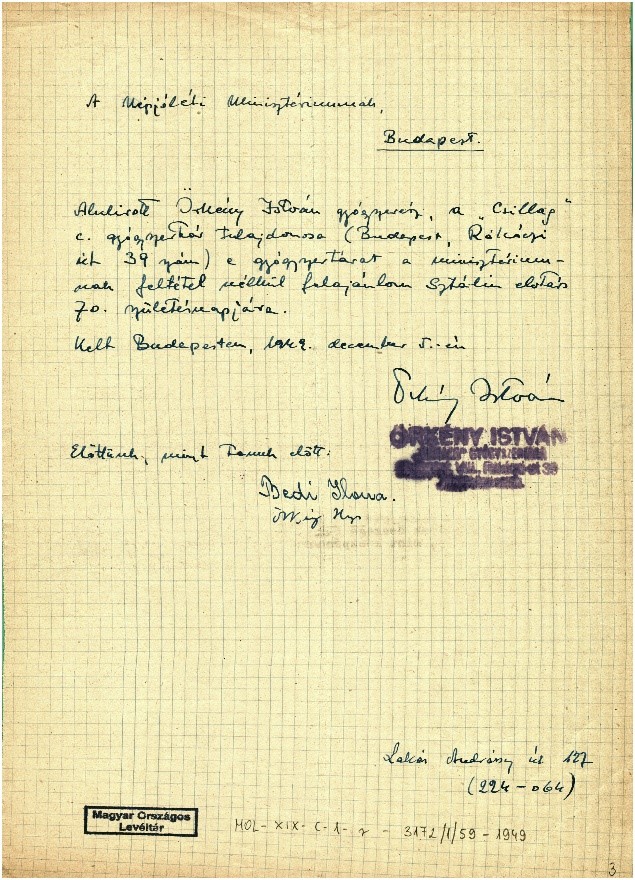 A Népjóléti Minisztériumnak,
Budapest.
Alulirott Örkény István gyógyszerész, a „Csillag"
c. gyógyszertár tulajdonosa (Budapest, Rákóczi
út 39 szám) e gyógyszertárat a minisztérium-
nak feltétel nélkül felajánlom Sztálin elvtárs
70. születésnapjára.
Kelt Budapesten, 1949. december 5.-én
Örkény István
ÖRKÉNY ISTVÁN
GYÓGYSZERTÁRA
VIII., Rákóczi-út 39
Előttünk, mint tanuk előtt:
Bedi Ilona.
Lakás Andrássy út 127
(224-064)
Magyar Országos
Levéltár
MOL-XIX-C-1-r - 3172/1/59-1949
3